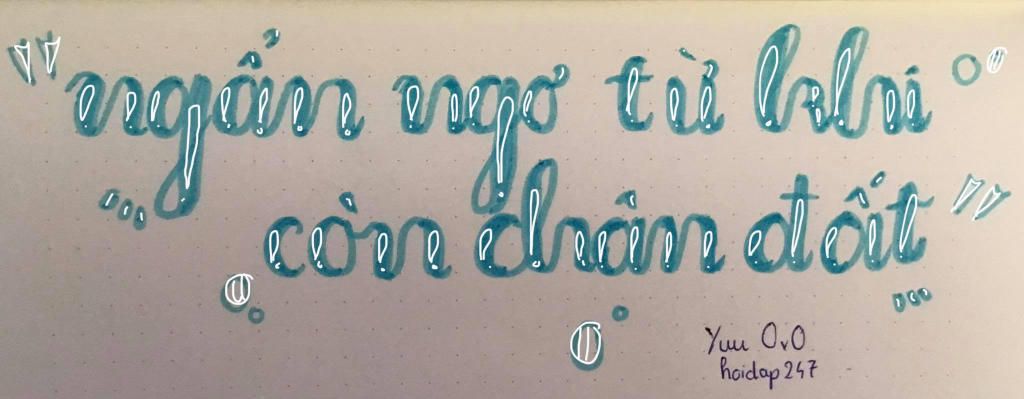 "ngẩn ngơ từ khi
còn chân đất"
Yuu OvO
hoidap247